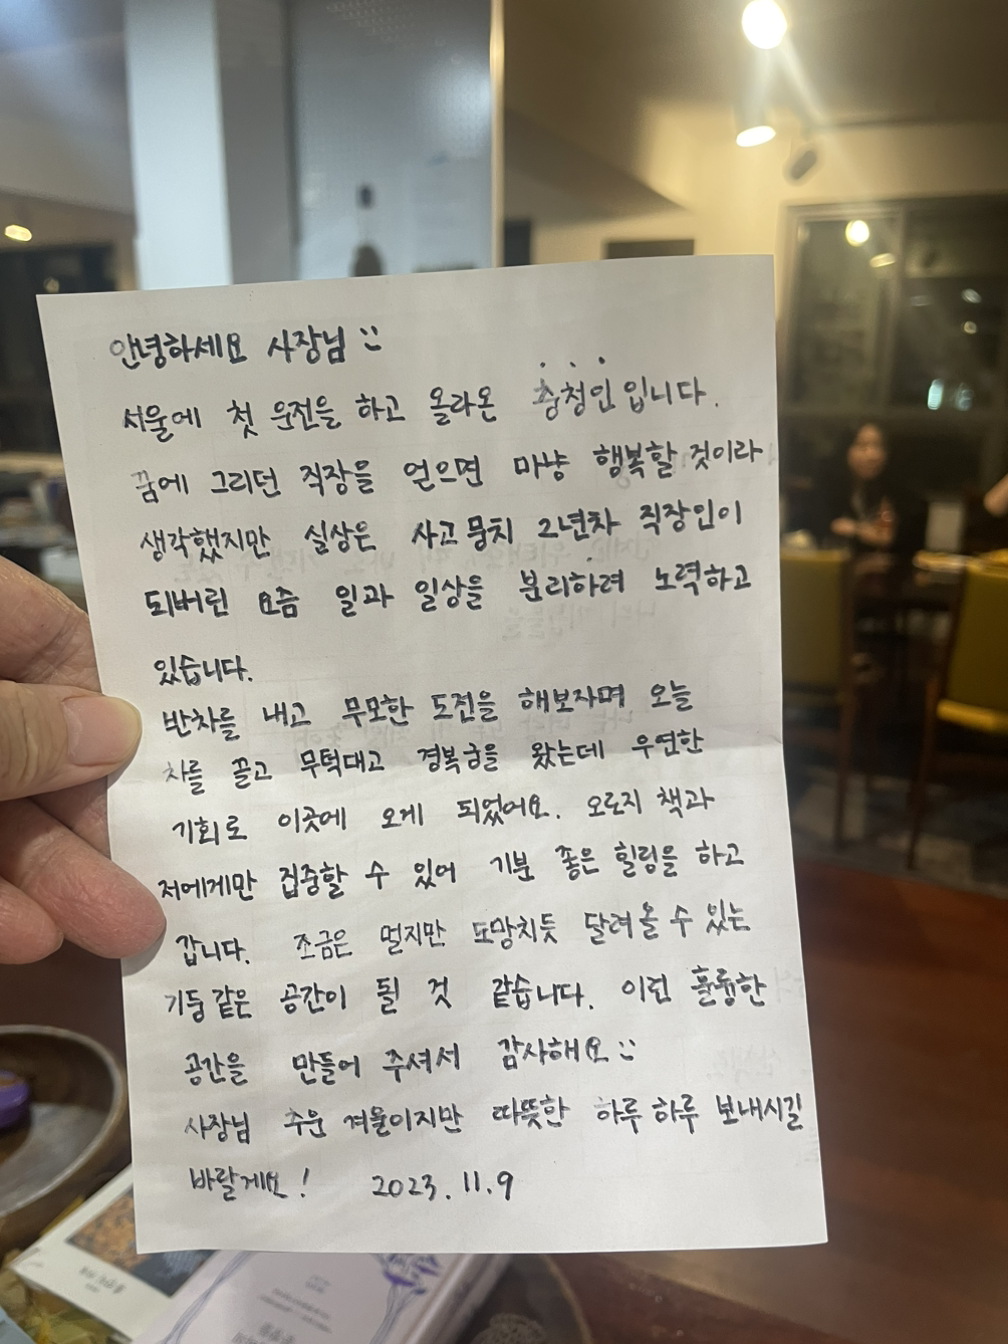 안녕하세요 사장님 :)
서울에 첫 운전을 하고 올라온 충청인입니다.
꿈에 그리던 직장을 얻으면 마냥 행복할 것이라
생각했지만 실상은 사고뭉치 2년차 직장인이
되버린 요즘 일과 일상을 분리하려 노력하고
있습니다.
반차를 내고 무모한 도전을 해보자며 오늘
차를 끌고 무턱대고 경복궁을 왔는데 우연한
기회로 이곳에 오게 되었어요. 오로지 책과
저에게만 집중할 수 있어 기분 좋은 힐링을 하고
갑니다. 조금은 멀지만 도망치듯 달려올 수 있는
기둥같은 공간이 될 것 같습니다. 이런 훌륭한
공간을 만들어 주셔서 감사해요 :)
사장님 추운 겨울이지만 따뜻한 하루하루 보내시길
바랄게요! 2023.11.9